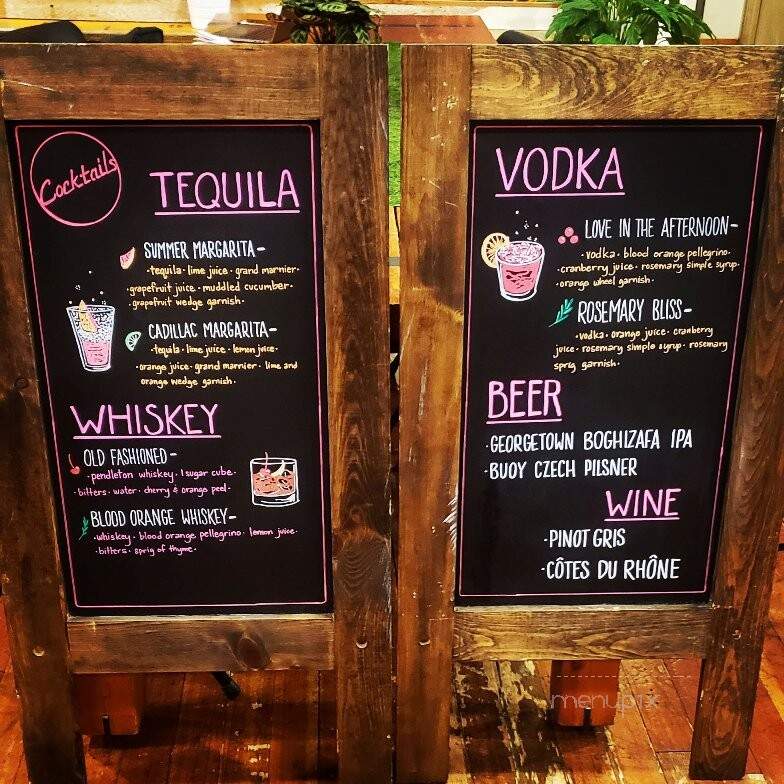 Cocktails
TEQUILA
SUMMER MARGARITA-
·tequila· lime juice· grand marnier·
·grapefruit juice· muddled cucumber·
·grapefruit wedge garnish·
CADILLAC MARGARITA-
·tequila· lime juice· lemon juice·
·orange juice· grand marnier· lime and
orange wedge garnish·
WHISKEY
OLD FASHIONED-
·pendleton whiskey· 1 sugar cube·
·bitters· water· cherry & orange peel·
BLOOD ORANGE WHISKEY-
·whiskey· blood orange pellegrino· lemon juice·
·bitters· sprig of thyme·
VODKA
LOVE IN THE AFTERNOON-
·vodka· blood orange pellegrino·
·cranberry juice· rosemary simple syrup·
·orange wheel garnish·
ROSEMARY BLISS-
·vodka· orange juice· cranberry
juice· rosemary simple syrup· rosemary
sprig garnish·
BEER
·GEORGETOWN BOGHIZAFA IPA
·BUOY CZECH PILSNER
WINE
·PINOT GRIS
·CÔTES DU RHÔNE
menupix